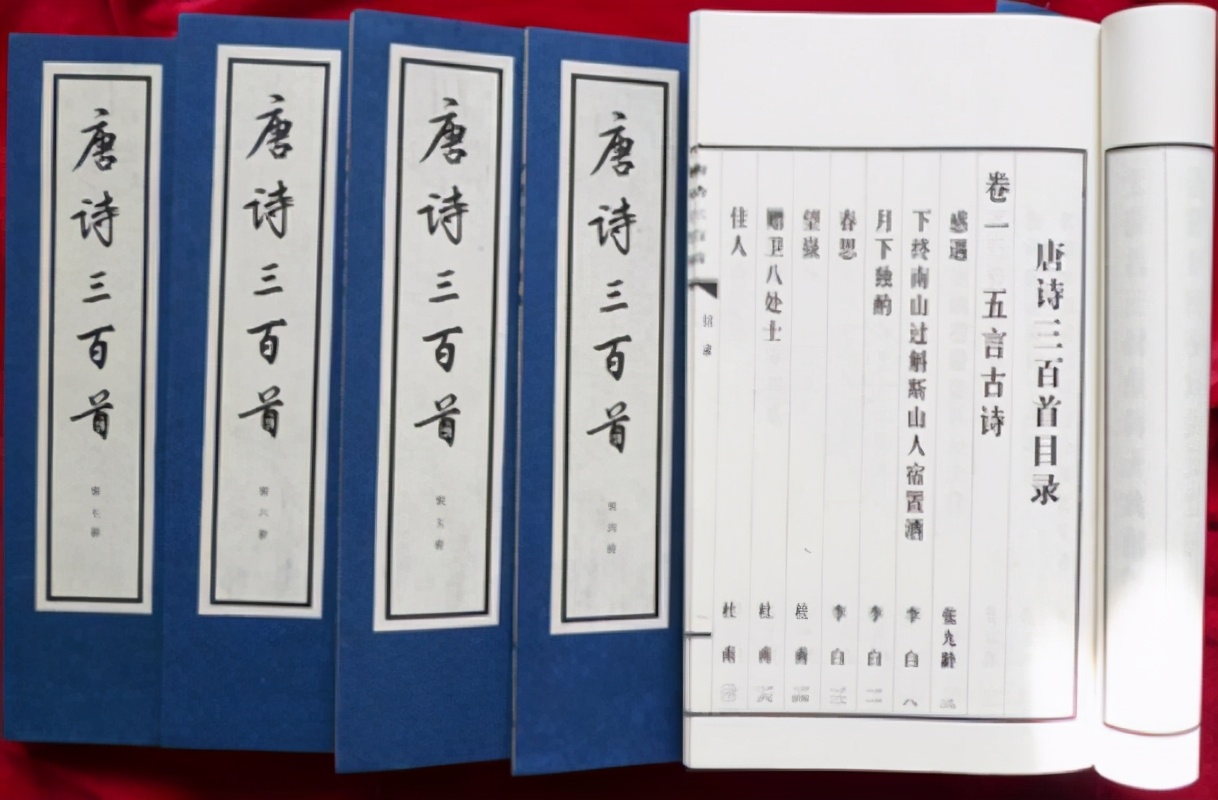 唐诗三百首
唐诗三百首
唐诗三百首
唐诗三百首
唐诗三百首目录
卷一 五言古诗
感遇 张九龄
下终南山过斛斯山人宿置酒 李白
月下独酌 李白 二
春思 李白 三
望岳 杜甫
赠卫八处士 杜甫
佳人 杜甫